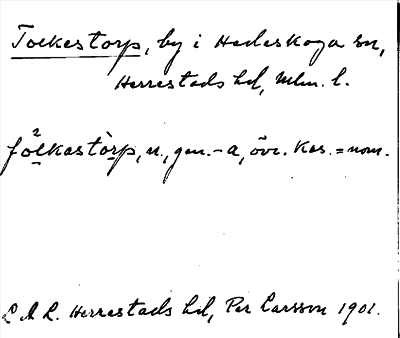 Tolkestorp, by i Hedeskoga sn,
Herrestads hd, Mlm. l.
fö²lkastòrp, n., gen. -a, övr. kas. = nom.
L A L. Herrestads hd, Per Larsson 1901.